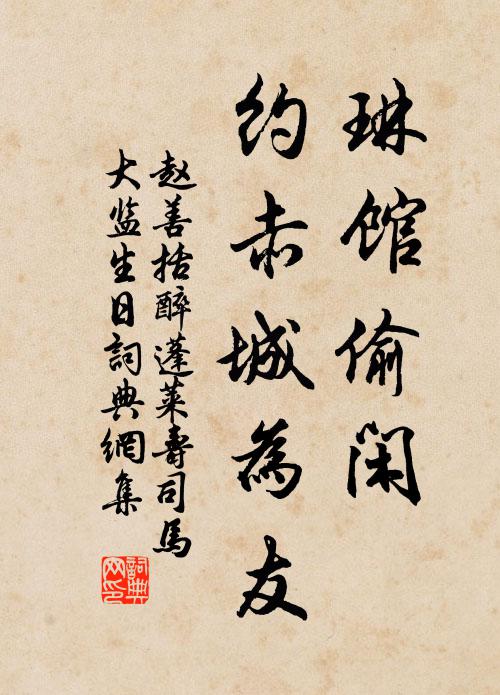 琳馆偷闲
约赤城為友
赵善括醉蓬莱壽司馬
大监生日詞典網集
詞典
网印